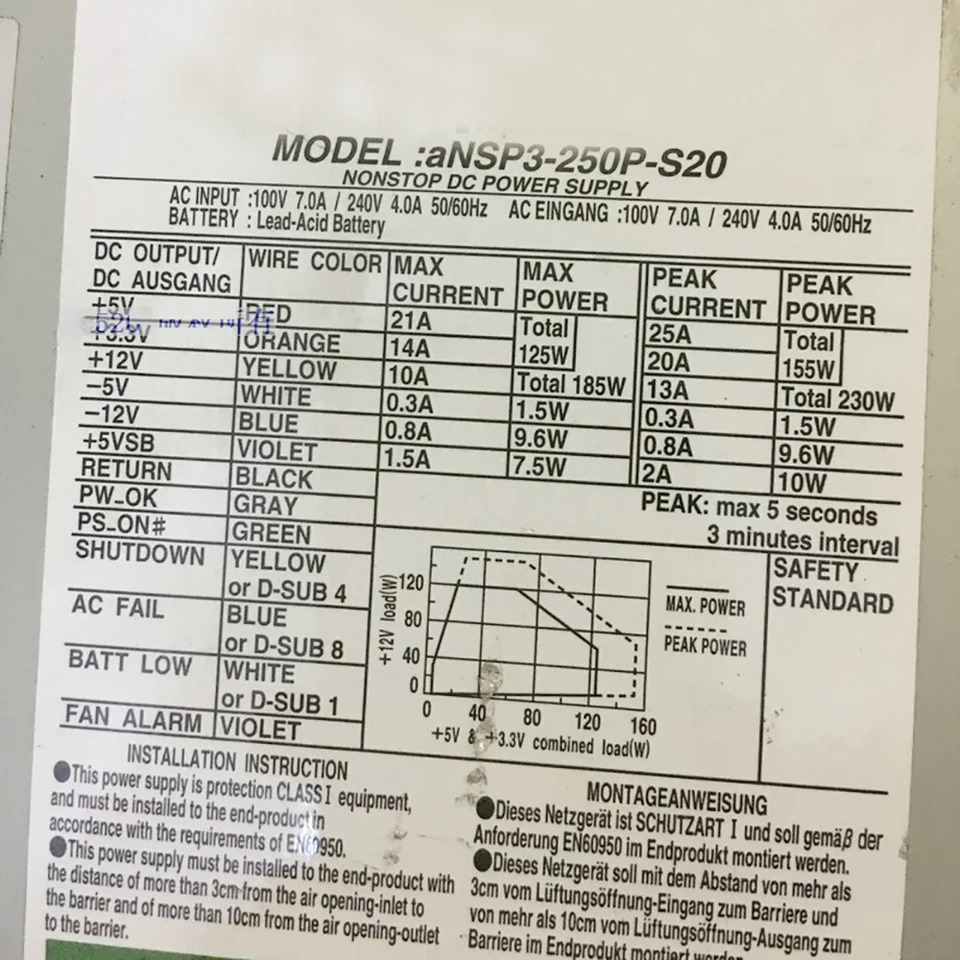 MODEL :aNSP3-250P-S20
NONSTOP DC POWER SUPPLY
AC INPUT :100V 7.0A / 240V 4.0A 50/60Hz AC EINGANG :100V 7.0A / 240V 4.0A 50/60Hz
BATTERY : Lead-Acid Battery
DC OUTPUT/ DC AUSGANG WIRE COLOR MAX CURRENT MAX POWER PEAK CURRENT PEAK POWER
+5V RED 21A Total 125W 25A Total 155W
+3.3V ORANGE 14A 20A
+12V YELLOW 10A Total 185W 13A Total 230W
−5V WHITE 0.3A 1.5W 0.3A 1.5W
−12V BLUE 0.8A 9.6W 0.8A 9.6W
+5VSB VIOLET 1.5A 7.5W 2A 10W
RETURN BLACK
PW_OK GRAY
PS_ON# GREEN
SHUTDOWN YELLOW or D-SUB 4
AC FAIL BLUE or D-SUB 8
BATT LOW WHITE or D-SUB 1
FAN ALARM VIOLET
PEAK: max 5 seconds
3 minutes interval
SAFETY
STANDARD
+12V load(W)
120
80
40
0
0 40 80 120 160
+5V & +3.3V combined load(W)
MAX. POWER
PEAK POWER
INSTALLATION INSTRUCTION
●This power supply is protection CLASS I equipment,
and must be installed to the end-product in
accordance with the requirements of EN60950.
●This power supply must be installed to the end-product with
the distance of more than 3cm from the air opening-inlet to
the barrier and of more than 10cm from the air opening-outlet
to the barrier.
MONTAGEANWEISUNG
●Dieses Netzgerät ist SCHUTZART I und soll gemäβ der
Anforderung EN60950 im Endprodukt montiert werden.
●Dieses Netzgerät soll mit dem Abstand von mehr als
3cm vom Lüftungsöffnung-Eingang zum Barriere und
von mehr als 10cm vom Lüftungsöffnung-Ausgang zum
Barriere im Endprodukt montiert werden